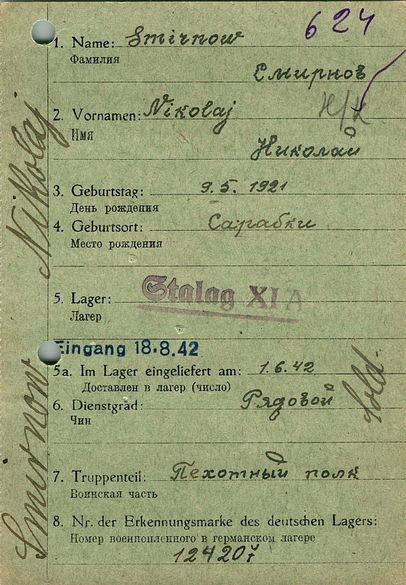 624
1. Name: Smirnow
Фамилия
Смирнов
2. Vornamen: Nikolaj
Имя
Н/К
Николай
3. Geburtstag: 9.5.1921
День рождения
4. Geburtsort: Сарабки
Место рождения
5. Lager: Stalag XI A
Лагер
Eingang 18.8.42
5a. Im Lager eingeliefert am: 1.6.42
Доставлен в лагер (число)
6. Dienstgrad: Рядовой
Чин
Sold.
7. Truppenteil: Пехотный полк
Воинская часть
8. Nr. der Erkennungsmarke des deutschen Lagers:
Номер военнопленного в германском лагере
124207
Smirnow Nikolaj